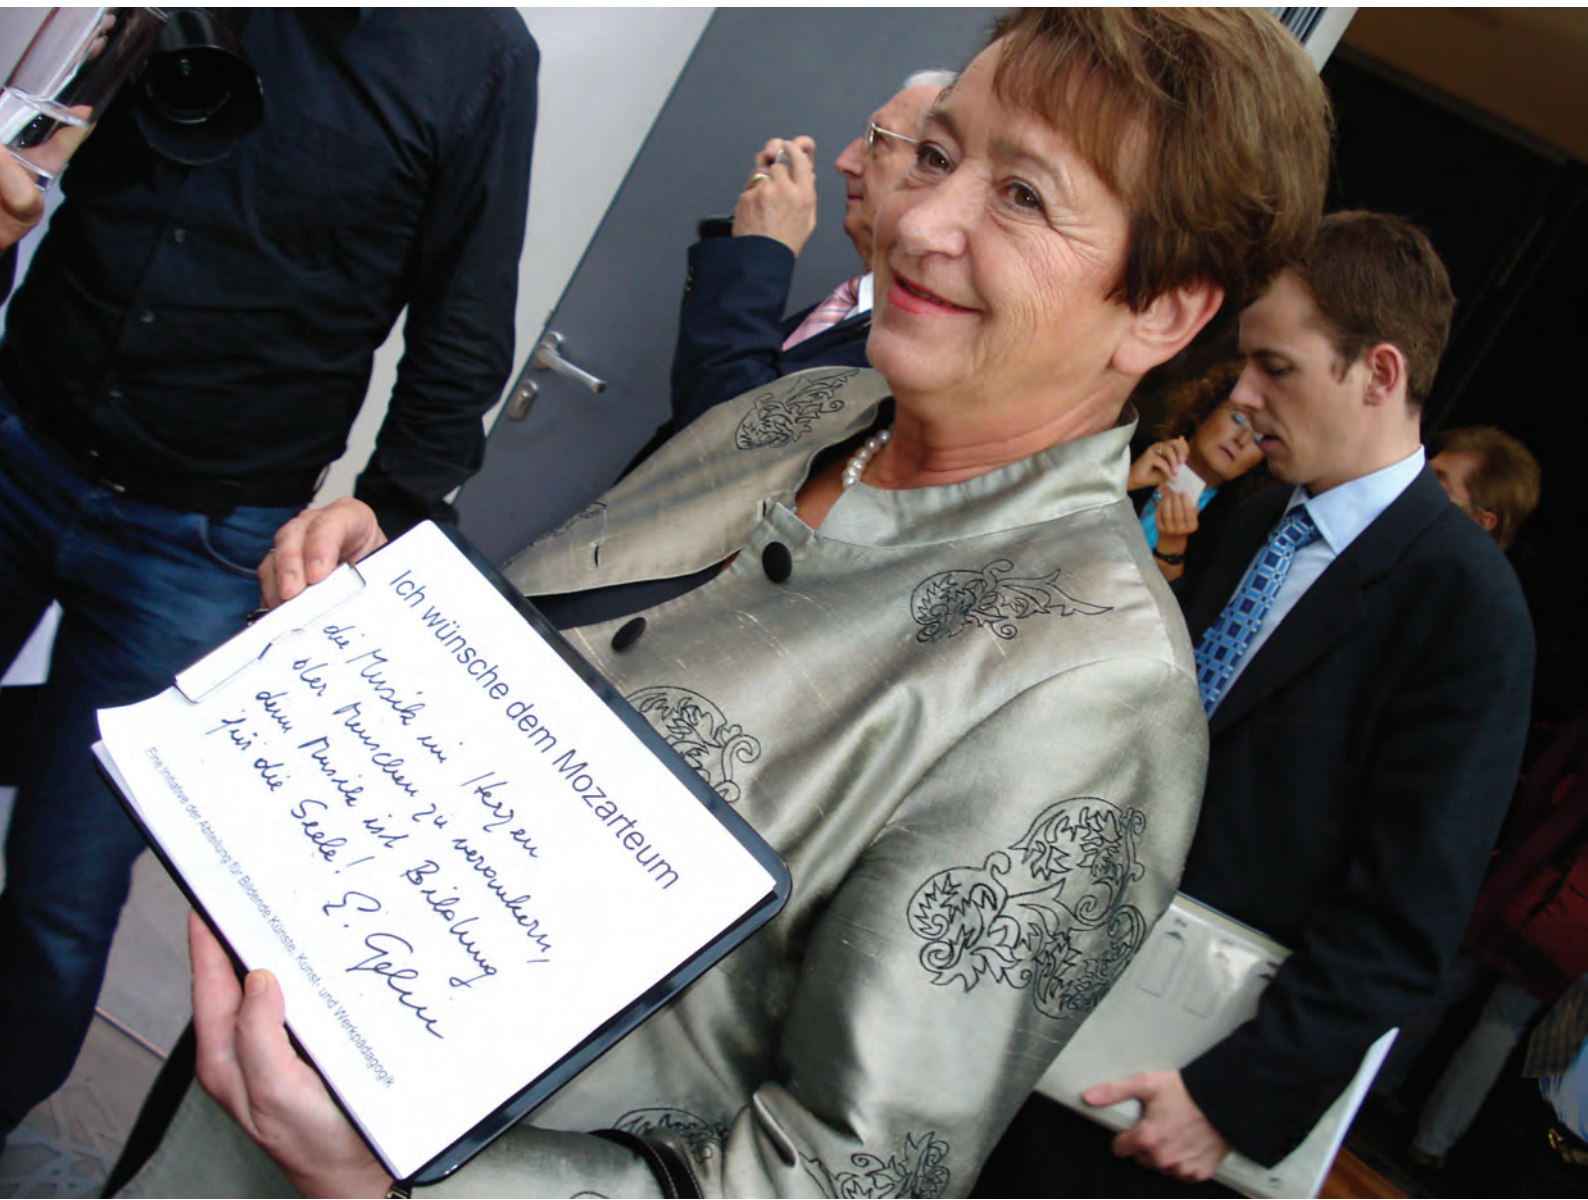 Ich wünsche dem Mozarteum
die Musik im Herzen
der Menschen zu verankern,
denn Musik ist Bildung
für die Seele!
Eine Initiative der Abteilung für Bildende Künste, Kunst- und Werkpädagogik